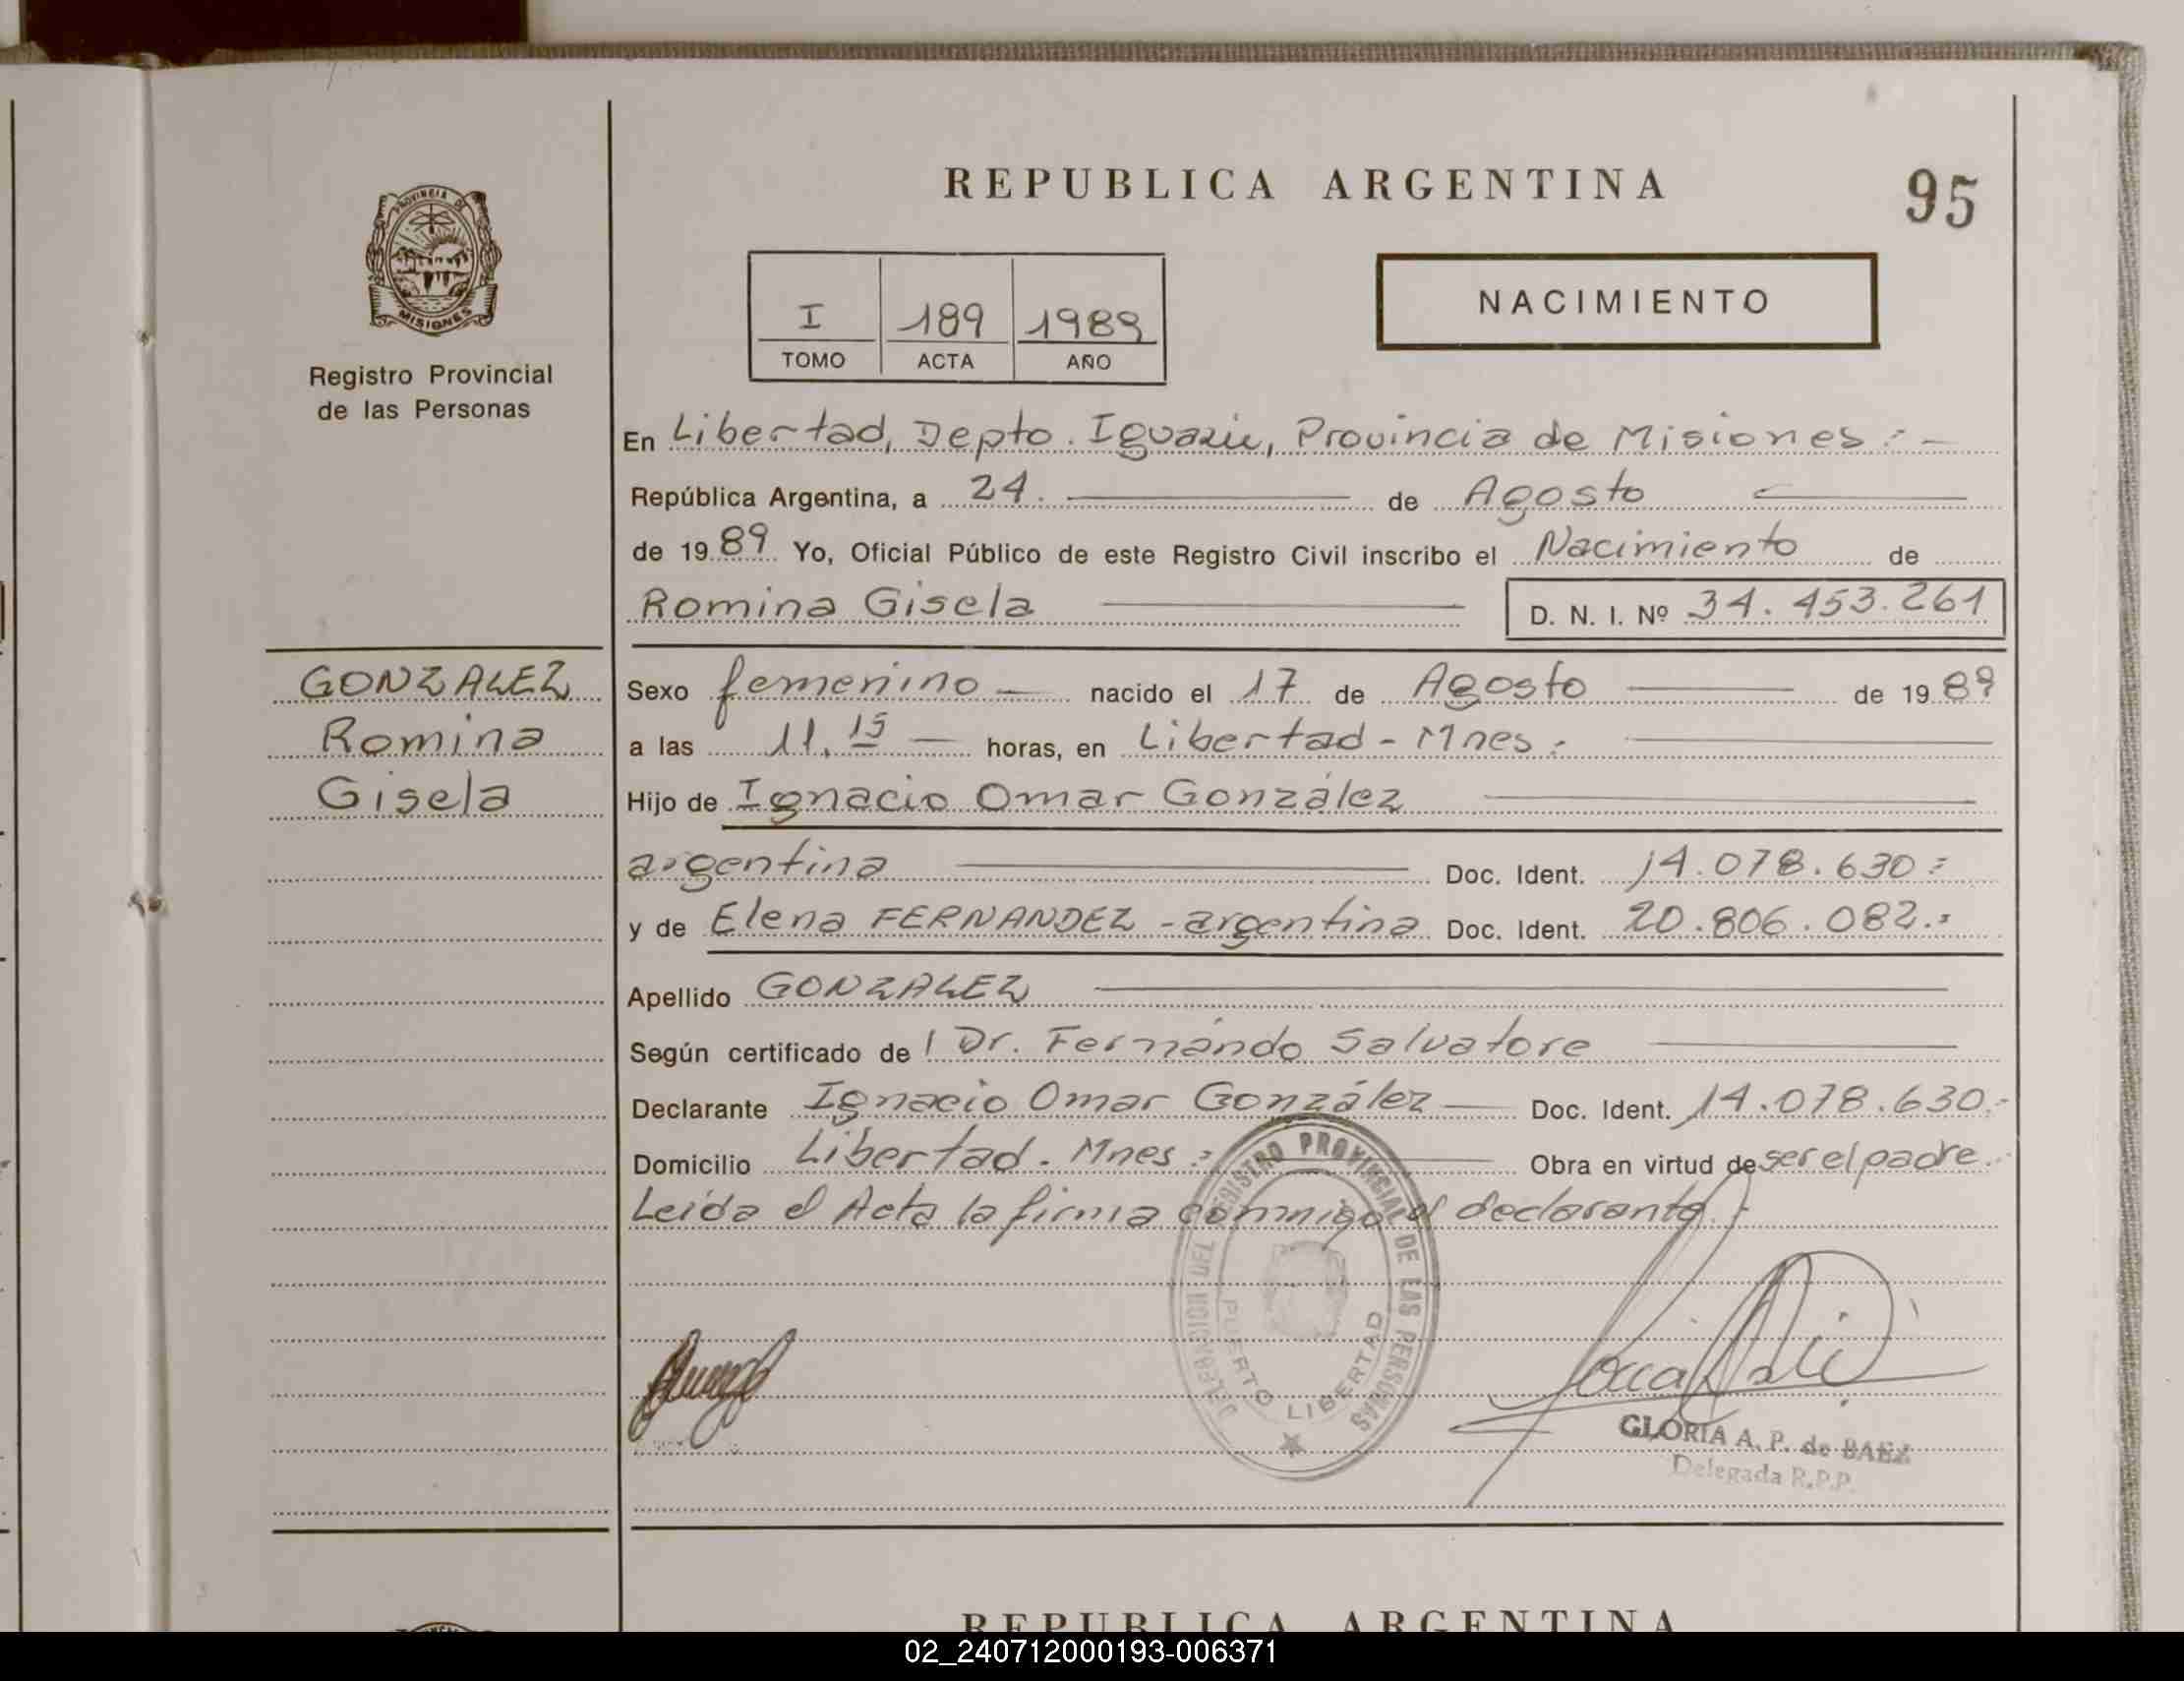 REPUBLICA ARGENTINA
95
PROVINCIA DE
MISIONES
Registro Provincial
de las Personas
I 189 1989
TOMO ACTA AÑO
NACIMIENTO
En Libertad, Depto. Iguazú, Provincia de Misiones.-
República Argentina, a 24. de Agosto
de 1989 Yo, Oficial Público de este Registro Civil inscribo el Nacimiento de
Romina Gisela D. N. I. Nº 34.453.261
GONZALEZ
Romina
Gisela
Sexo femenino nacido el 17 de Agosto de 1989
a las 11,15 horas, en Libertad - Mnes.
Hijo de Ignacio Omar González
argentina Doc. Ident. 14.078.630
y de Elena FERNANDEZ - argentina Doc. Ident. 20.806.082.
Apellido GONZALEZ
Según certificado de l Dr. Fernándo Salvatore
Declarante Ignacio Omar González Doc. Ident. 14.078.630.-
Domicilio Libertad. Mnes. Obra en virtud de ser el padre.
Leída el Acta la firma conmigo el declarante.
DELEGACION DEL REGISTRO PROVINCIAL DE LAS PERSONAS
PUERTO LIBERTAD
GLORIA A. P. de BAEZ
Delegada R.P.P.
REPUBLICA ARGENTINA
02_240712000193-006371